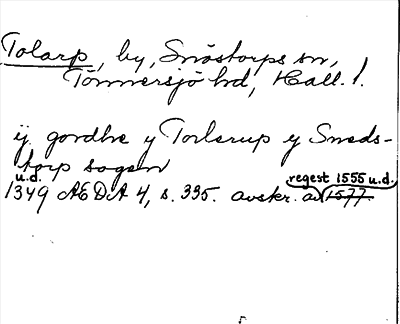 Tolarp, by, Snöstorps sn,
Tönnersjö hd, Hall. l.
ij gordhe y Torlerup y Sneds-
torp sogen
u.d. regest 1555 u.d.
1349 ÆDA 4, s. 335. avskr. av 1577.